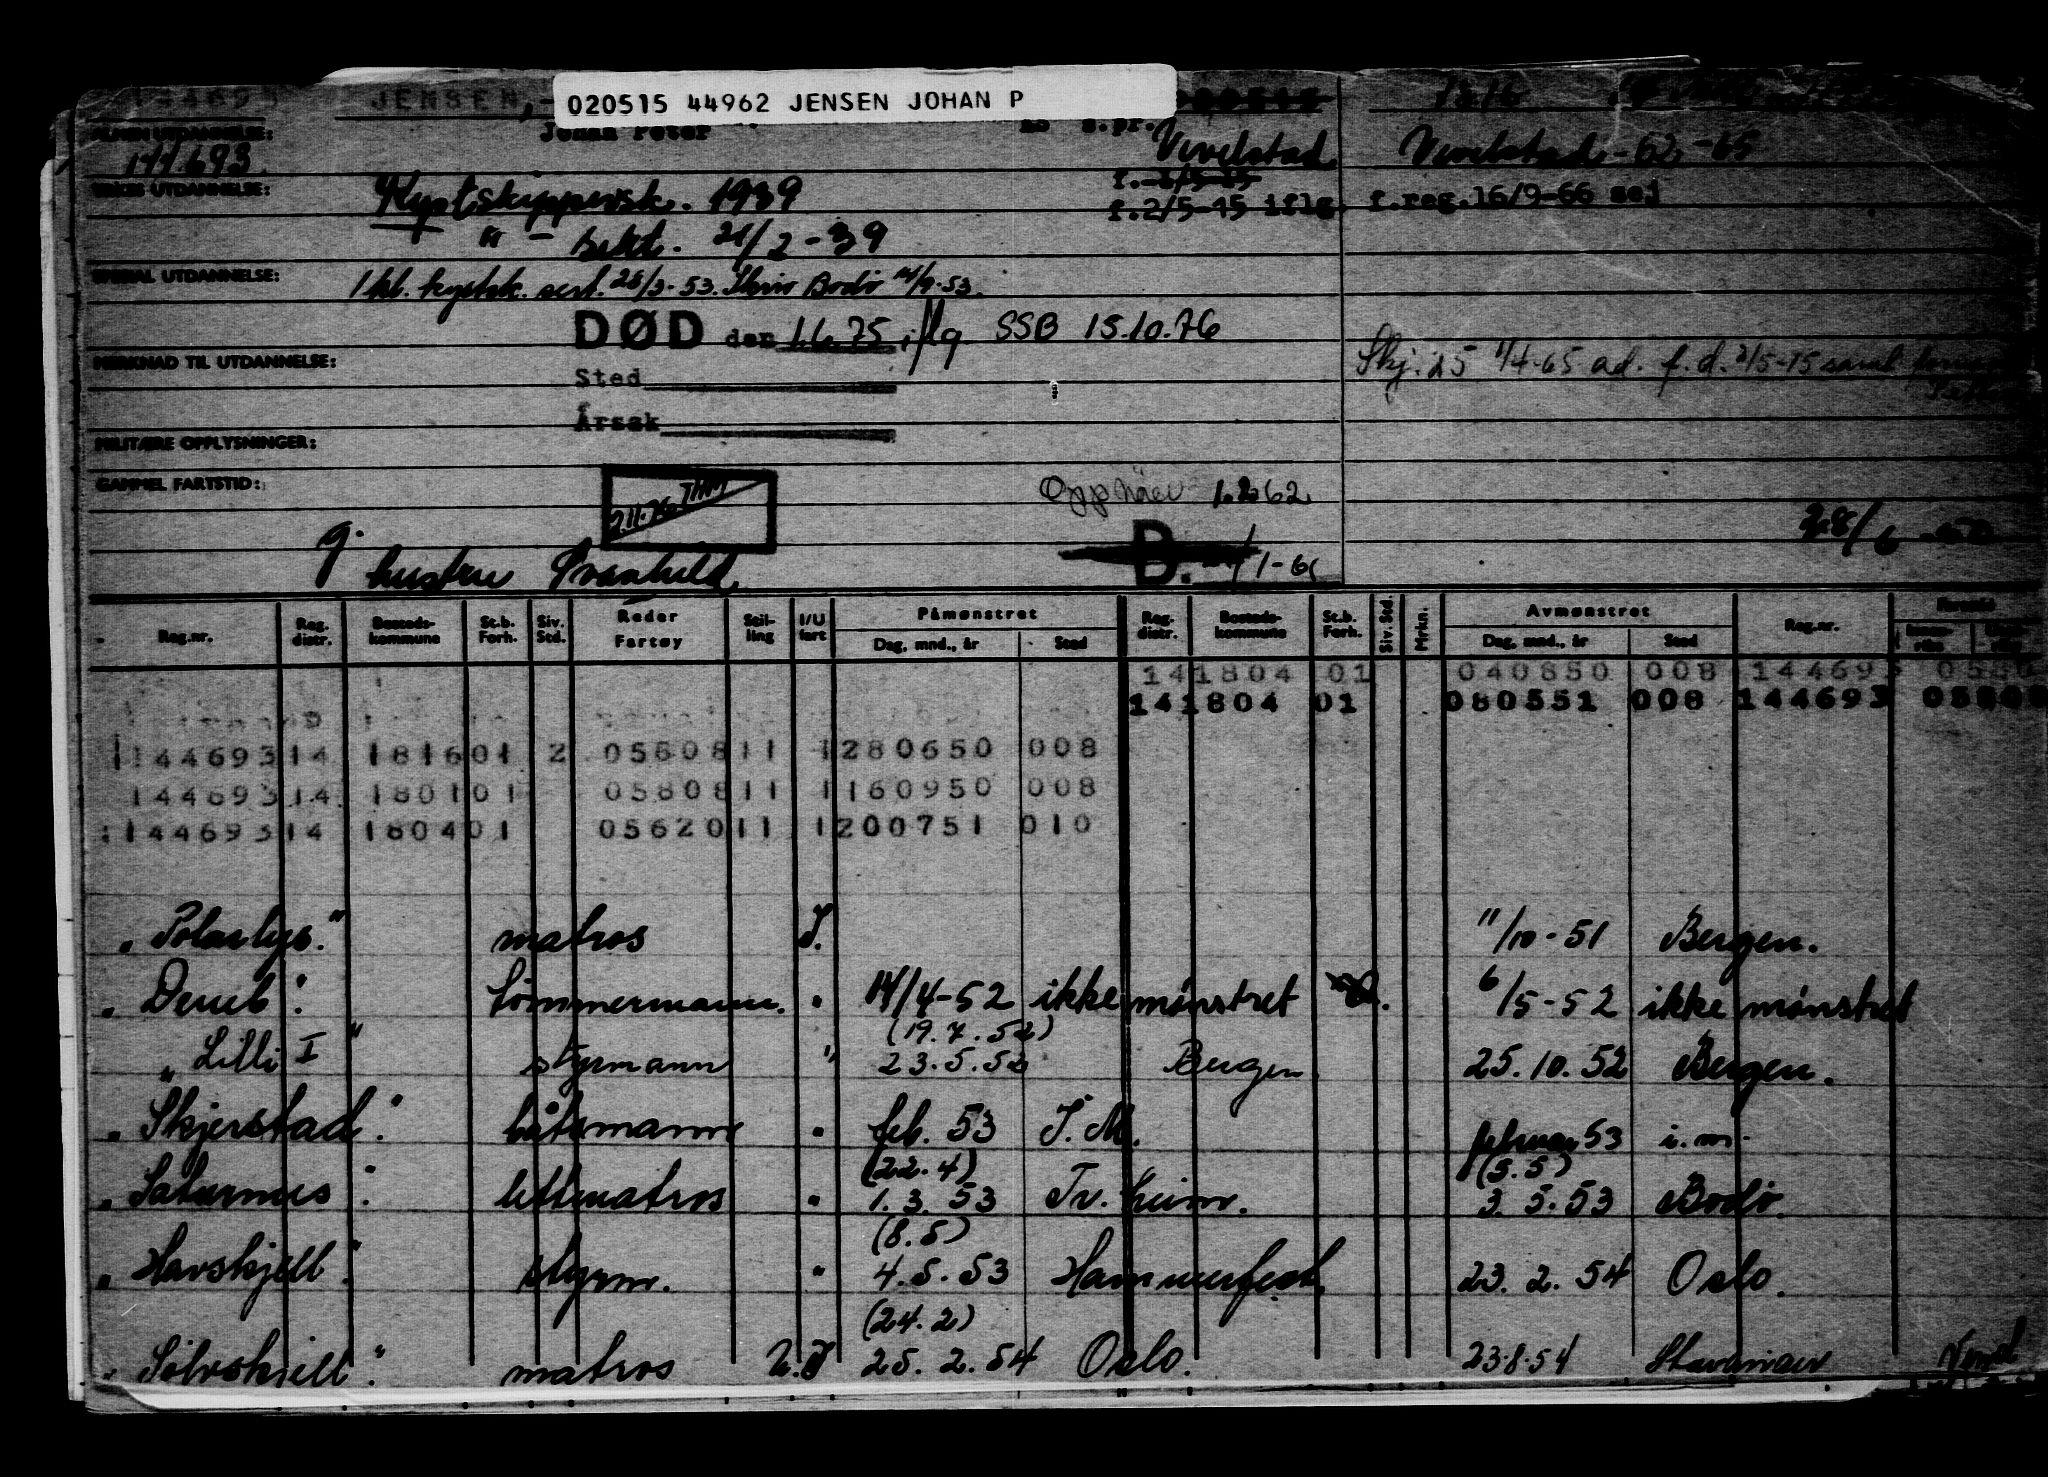 14469 JENSEN, 020515 44962 JENSEN JOHAN P 1816
ALMEN UTDANNELSE: Johan Peter s.pr.
144.693 Vevelstad Vevelstad -62, -65
YRKES UTDANNELSE: Kystskippersk. 1939 f.
f.2/5-15 iflg. f.reg.16/9-66 sej
" - 21/2-39
SPESIAL UTDANNELSE: 1 kl. kystsk. sert. 28/3-53. Bodø
DØD den 1.6.75 iflg SSB 15.10.76
MERKNAD TIL UTDANNELSE: Skj. 25 1/4-65 ad. f.d. 2/5-15
Sted
Årsak
MILITÆRE OPPLYSNINGER:
GAMMEL FARTSTID:
2.11.76 THM
Opphäev 1.2.62
28/6-50
g. hustru Svanhild.
B.
Reg.nr. Reg. distr. Bosteds- kommune St.b. Forh. Siv. Std. Reder Fartøy Stil- ling I/U fart Påmønstret Dag, mnd., år Sted Reg. distr. Bosteds- kommune St.b. Forh. Siv. Std. Mrkn. Avmønstret Dag, mnd., år Sted Reg.nr.
141804 01 040850 008 144693 0580
141804 01 080551 008 144693 05808
144693 14 1816 01 2 05808 11 1 280650 008
144693 14 1801 01 05808 11 1 160950 008
144693 14 1804 01 05620 11 1 200751 010
"Polarlys." matros I. 11/10-51 Bergen.
"Deneb". tømmermann. " 14/4-52 ikke mønstret 6/5-52 ikke mønstret
(19.7.52)
"Lilli I" styrmann " 23.5.52 Bergen. 25.10.52 Bergen.
"Skjerstad". båtsmann " feb. 53 I.M. februar 53 i.m.
(22.4) (5.5)
"Saturnus". lettmatros " 1.3.53 Tr.heim. 3.5.53 Bodø.
(8.5)
"Havskjell". styrm. " 4.5.53 Hammerfest. 23.2.54 Oslo.
(24.2)
"Sølvskjell". matros U.I 25.2.54 Oslo. 23.8.54 Stavanger